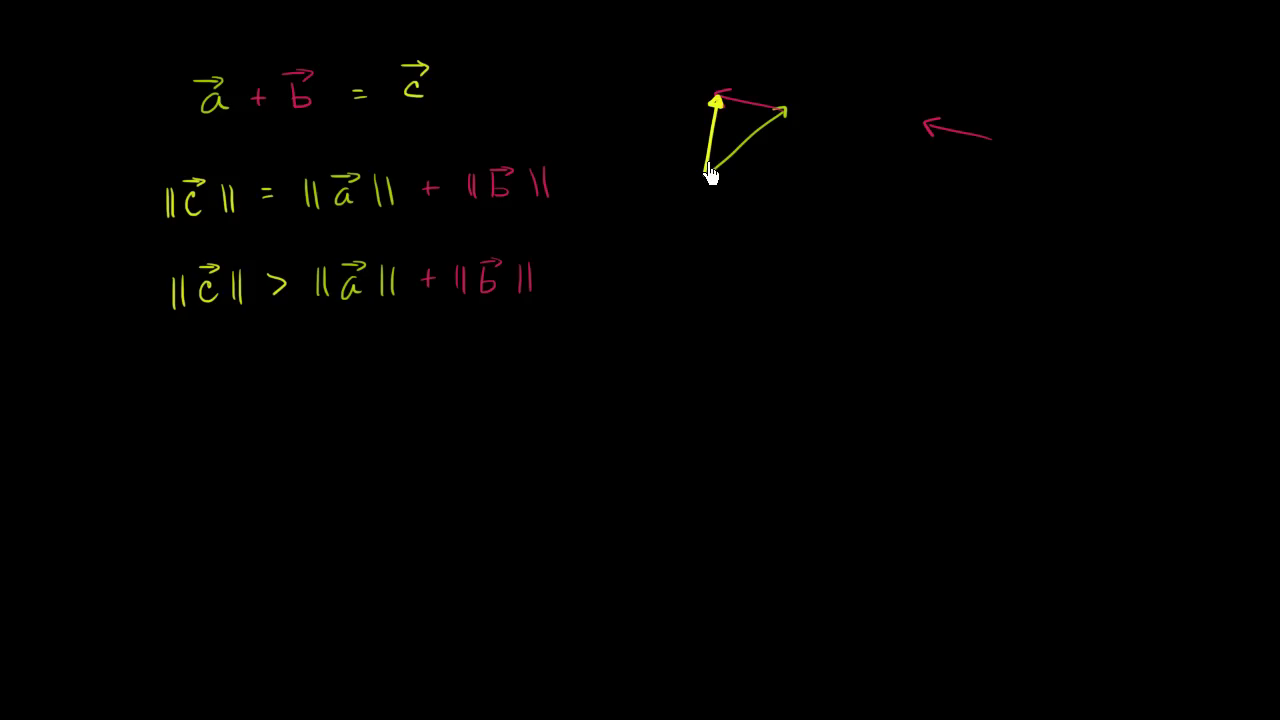 a⃗ + b⃗ = c⃗
||c⃗|| = ||a⃗|| + ||b⃗||
||c⃗|| > ||a⃗|| + ||b⃗||